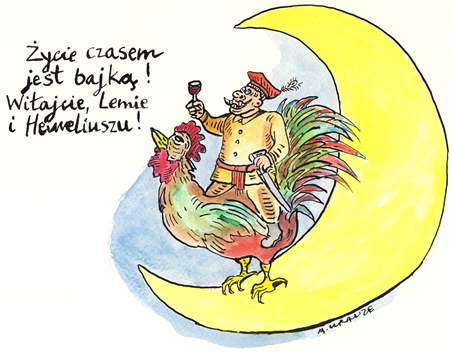 Życie czasem
jest bajką!
Witajcie, Lemie
i Heweliuszu!
A. KRAUZE